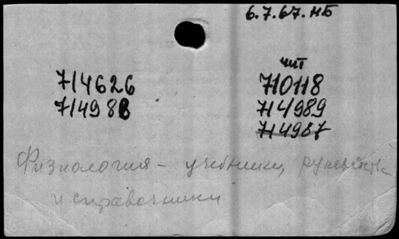 6.7.67. НБ
714626
71498
чит
710118
714989
714987
Физиология - учебники,
и справочники